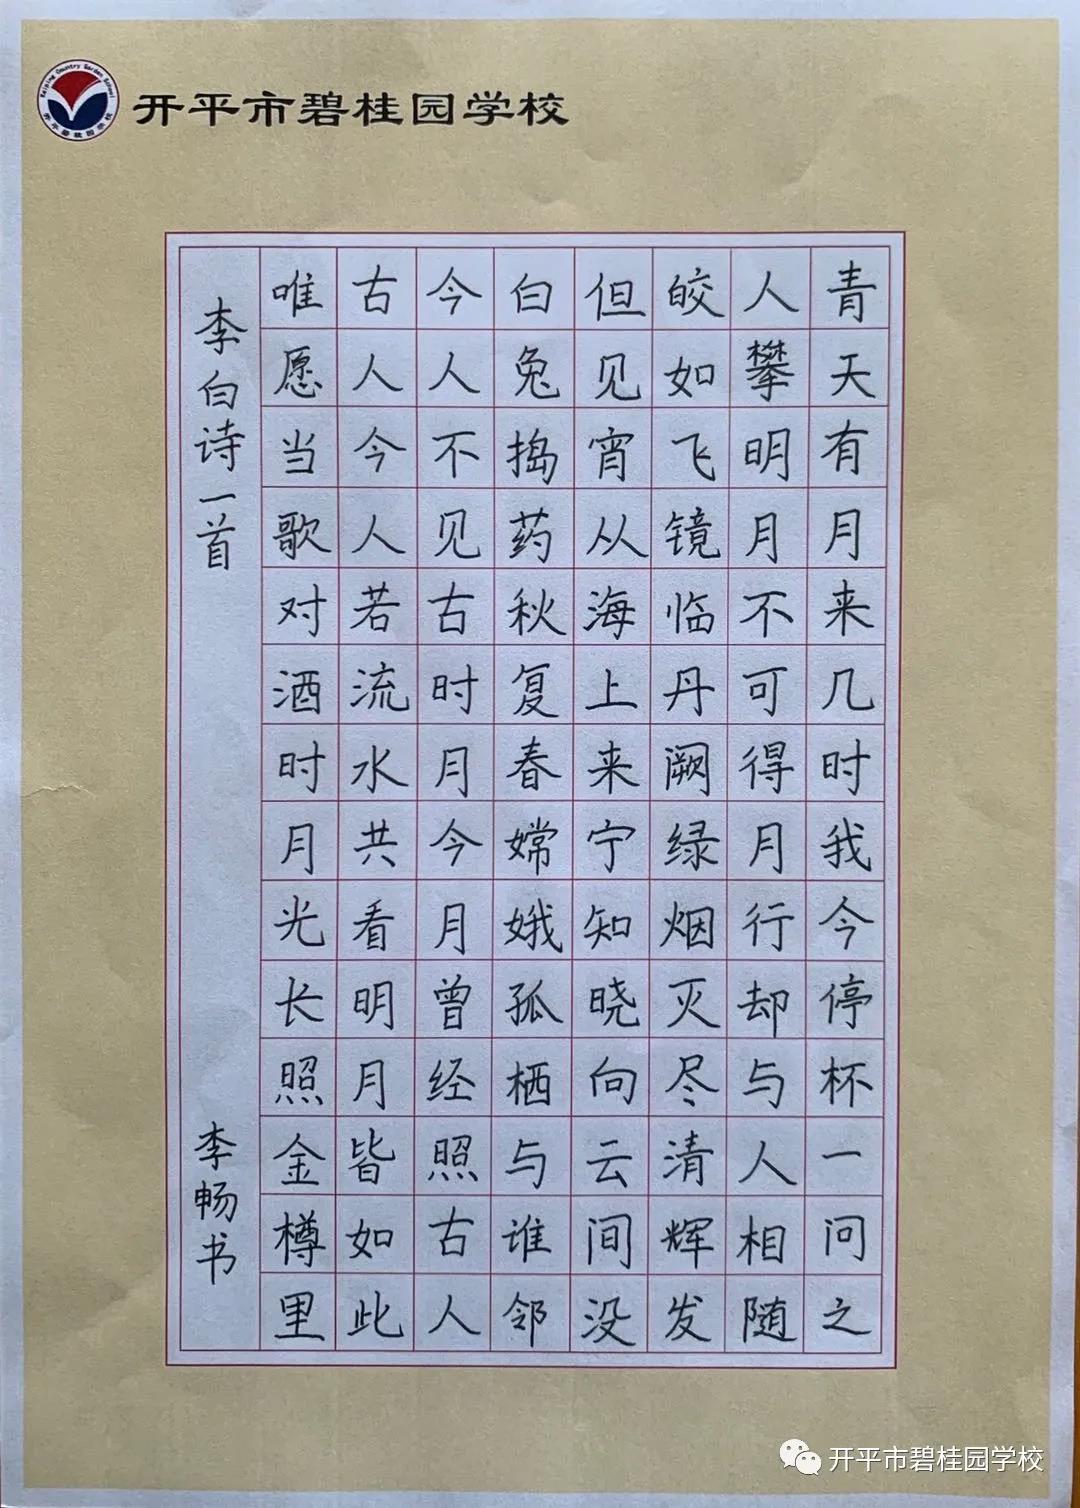 开平市碧桂园学校
Kaiping Country Garden School
开平碧桂园学校
青天有月来几时我今停杯一问之
人攀明月不可得月行却与人相随
皎如飞镜临丹阙绿烟灭尽清辉发
但见宵从海上来宁知晓向云间没
白兔捣药秋复春嫦娥孤栖与谁邻
今人不见古时月今月曾经照古人
古人今人若流水共看明月皆如此
唯愿当歌对酒时月光长照金樽里
李白诗一首
李畅书
开平市碧桂园学校